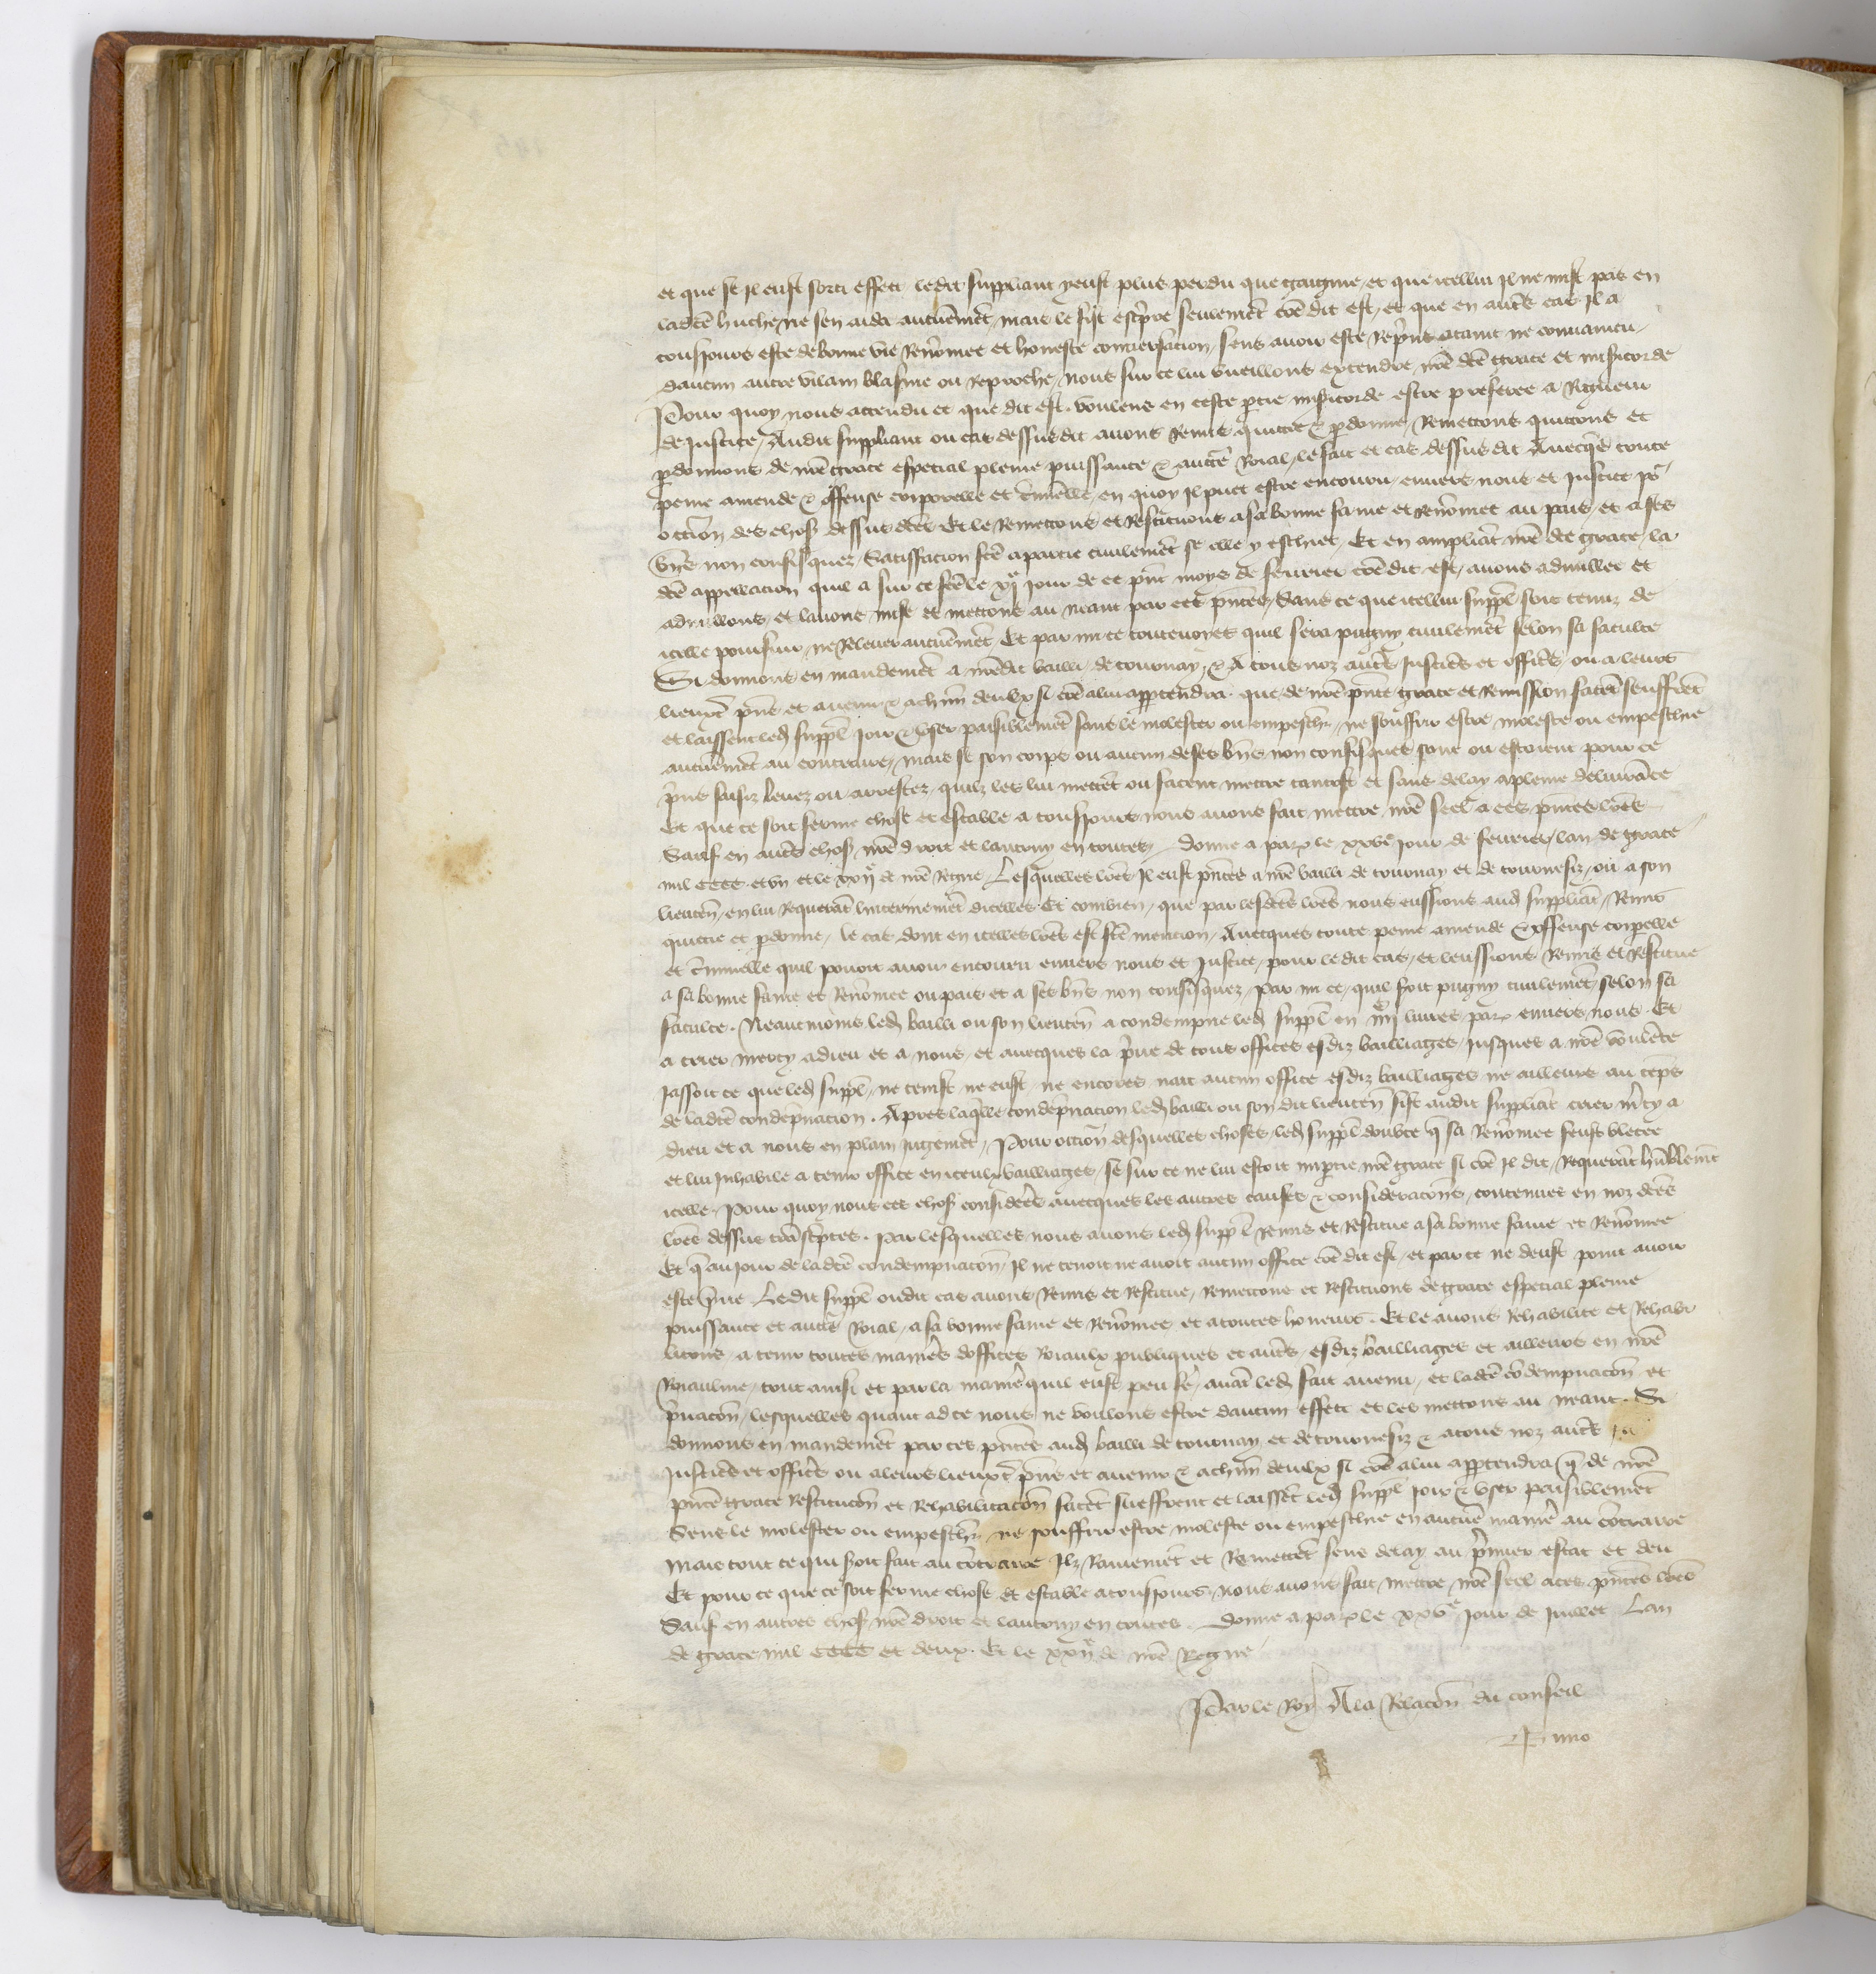 et que se il eust sorti effect ledit suppliant y eust plus perdu que gaigne et que icellui il ne mist pas en
ladcte huche ne sen aida aucunemt mais le fist escpre seulemt coe dit est et que en autres cas il a
tousiours este de bonne vie renomee et honeste conversacion sens avoir este reprins actaint ne convaincu
daucun autre vilain blasme ou reproche nous sur ce lui vueillons extendre nre dce grace et misericorde
Pour quoy nous attendu ce que dit est voulens en ceste partie misericorde estre preferee a rigueur
de justice Audit suppliant ou cas dessusdit avons remis quittie & pdonne remettons quittons et
pdonnons de nre grace especial pleine puissance & auctte roial le fait et cas dessus dit Avecqs toute
peine amende & offense corporelle et criminelle en quoy il puet estre encouru envers nous et justice pr
occion des choses dessus dctes Et le remettons et restituons a sa bonne fame et renomee au pais et a ses
biens non confisquez Satisfacion fcte a partie civilemt se elle y eschiet Et en ampliat nre dce grace la
dcte appellacion quil a sur ce fcte le xie jour de ce pnt moys de fevrier coe dit est avons adnullee et
adnullons et lavons mise et mettons au neant par ces pntes Sans ce que icellui suppl soit tenuz de
icelle poursuir ne relever aucunemt Et parmi ce toutevoyes quil sera pugny civilemt selon sa faculte
Si donnons en mandemt a nredit bailli de tournay & A tous noz autres justiciers et officiers ou a leurs
lieuxt pns et avenir & a chun deulx si coe a lui appartendra que de nre pnte grace et remission facet seuffret
et laissent led suppl joir & user paisiblemt sans le molester ou empeschr ne souffrir estre moleste ou empeschie
aucunemt au contraire mais se son corps ou aucun de ses bns non confisquez sont ou estoient pour ce
prins saisiz levez ou arrestez quilz les lui mettet ou facent mettre tantost et sans delay a pleine delivrace
Et que ce soit ferme chose et estable a tousiours nous avons fait mettre nre seel a ces pntes lres
Sauf en autres choses nre droit et lautruy en toutes Donne a par le xxve jour de fevrier lan de grace
mil cccc et un et le xxije de nre regne Lesquelles lres il eust pntees a nre bailli de tournay et de tournesiz ou a son
lieuten en lui requerat linterinemt dicelles Et combien que par lesdctes lres nous eussions aud suppliat remis
quittie et pdonne le cas dont en icelles lres est fcte mencion Avecques toute peine amende & offense corpelle
et criminelle quil povoit avoir encouru envers nous et justice pour ledit cas et leussions remis et restitue
a sa bonne fame et renomee ou pais et a ses bns non confisquez par mi ce quil soit pugny civilemt selon sa
faculte Neantmoins led bailli ou son lieuten a condempne led suppl en livres par envers nous Et
a crier mercy a dieu et a nous et avecques la prive de tous offices esdiz bailliages jusques a nre voulete
Jassoit ce que led suppl ne tenist ne eust ne encores nait aucun office esdiz bailliages ne ailleurs au teps
de ladcte condepnacion Apres laqlle condepnacion led bailli ou son dit lieuten fist audit suppliat crier mcy a
dieu et a nous en plain jugemt Pour occion desquelles choses led suppl doubte q sa renomee feust blecee
et lui inhabile a tenir office en iceulx bailliages se sur ce ne lui estoit impartie nre grace si coe il dit requerat humblemt
icelle Pour quoy nous ces choses considerees avecques les autres causes & consideracons contenues en noz dctes
lres dessus trascriptes Par lesquelles nous avons led suppl remis et restitue a sa bonne fame et renomee
Et q au jour de ladcte condempnacon il ne tenoit ne avoit aucun office coe dit est et par ce ne deust point avoir
este prive Ledit suppl oudit cas avons remis et restitue remettons et restituons de grace especial pleine
puissance et auctte roial a sa bonne fame et renomee et a toutes honeurs Et le avons rehabilite et rehabi
litons a tenir toutes manires doffices roiaulx publiques et autres esdiz bailliages et ailleurs en nre
Roiaulme tout ainsi et par la manire quil eust peu fe avat led fait avenu et ladcte codempnacon et
pvacon lesquelles quant ad ce nous ne voulons estre daucun effect et les mettons au neant Si
donnons en mandemt par ces pntes aud bailli de tournay et de tournesiz & a tous noz autres ju
Justiciers et officiers ou a leurs lieuxt pns et avenir & a chun deulx si coe a lui appartendra q de nre
pnte grace restitucon et rehabilitacon facet sueffrent et laisset led suppl joir & user paisiblemt
Sens le molester ou empeschr ne souffrir estre moleste ou empeschie en aucune manire au cotraire
Mais tout ce qui soit fait au cotraire ilz ramenent et remettet sens delay au premier estat et deu
Et pour ce que ce soit ferme chose et estable a tousiours nous avons fait mettre nre seel a ces pntes lres
Sauf en autres choses nre droit et lautruy en toutes Donne a par le xxve jour de juillet Lan
de grace mil cccc et deux Et le xxije de nre Regne
Par le Roy A la relacon du conseil